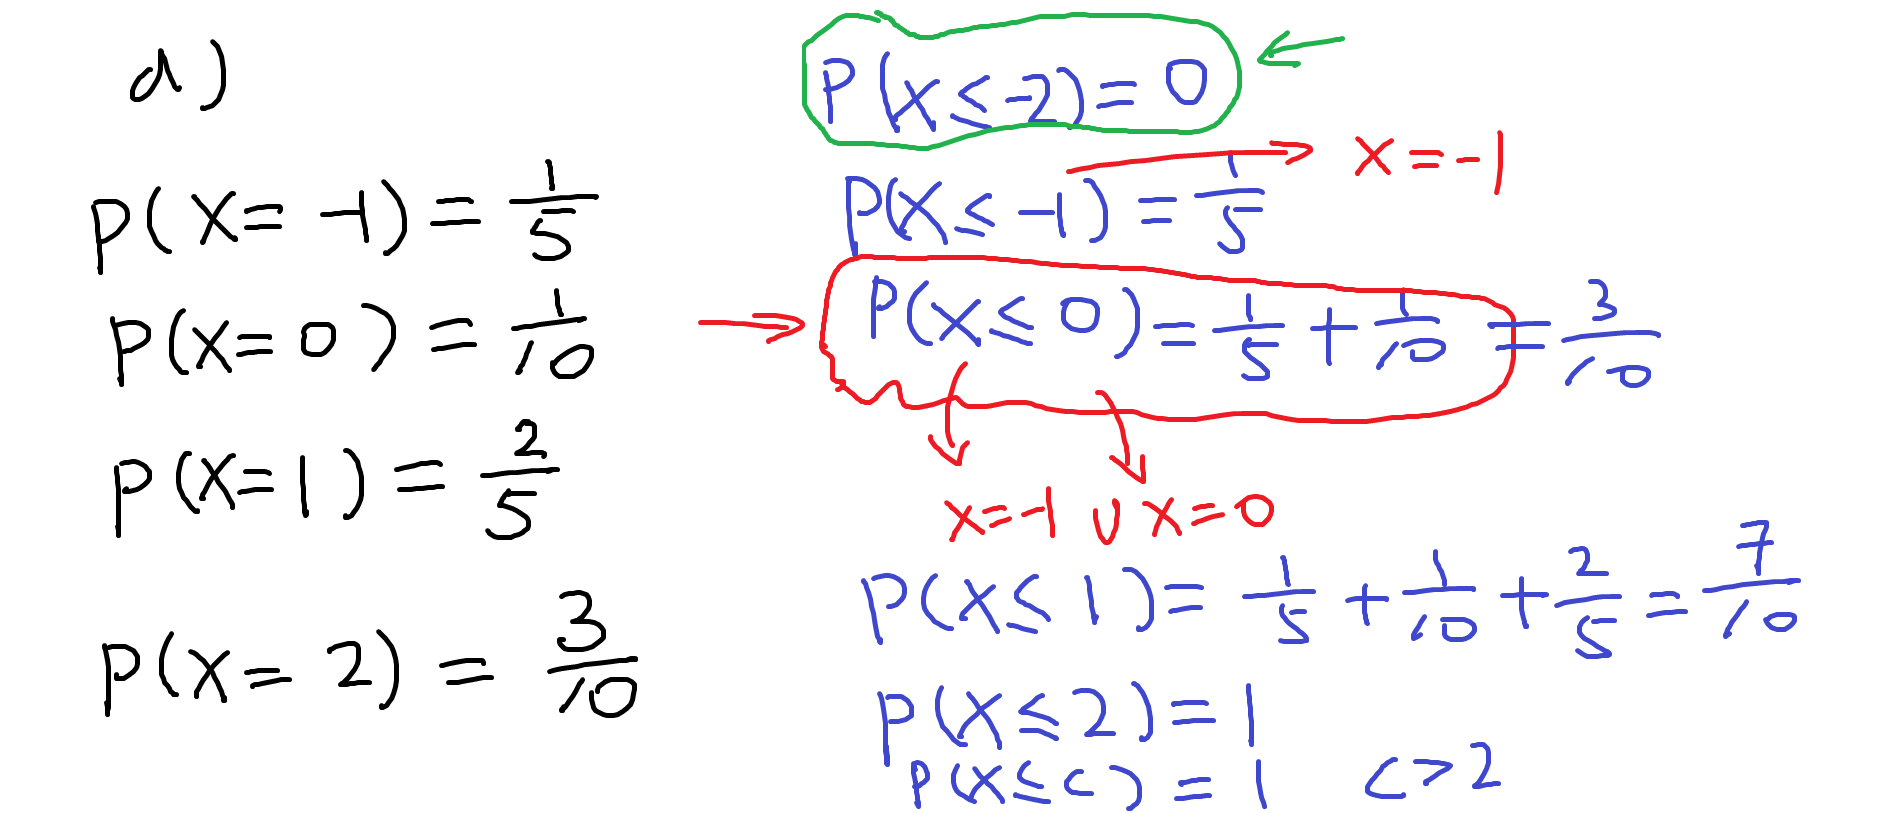 a)
P(X = -1) = 1/5
P(X = 0) = 1/10
P(X = 1) = 2/5
P(X = 2) = 3/10
P(X ≤ -2) = 0
P(X ≤ -1) = 1/5
x = -1
P(X ≤ 0) = 1/5 + 1/10 = 3/10
x = -1 ∪ x = 0
P(X ≤ 1) = 1/5 + 1/10 + 2/5 = 7/10
P(X ≤ 2) = 1
P(X ≤ c) = 1 c > 2